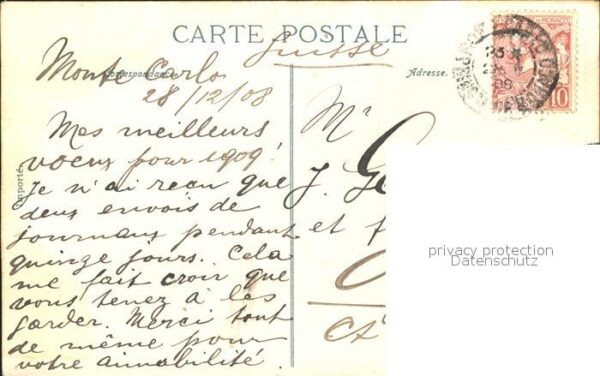 CARTE POSTALE
Suisse
Correspondance
Adresse.
Monte Carlo
28/12/08
Mes meilleurs
voeux pour 1909!
Je n'ai reçu que
deux envois de
journaux pendant
quinze jours. Cela
me fait croir que
vous tenez à les
garder. Merci tout
de même pour
votre aimabilité.
Mr
J.
et
10
privacy protection
Datenschutz